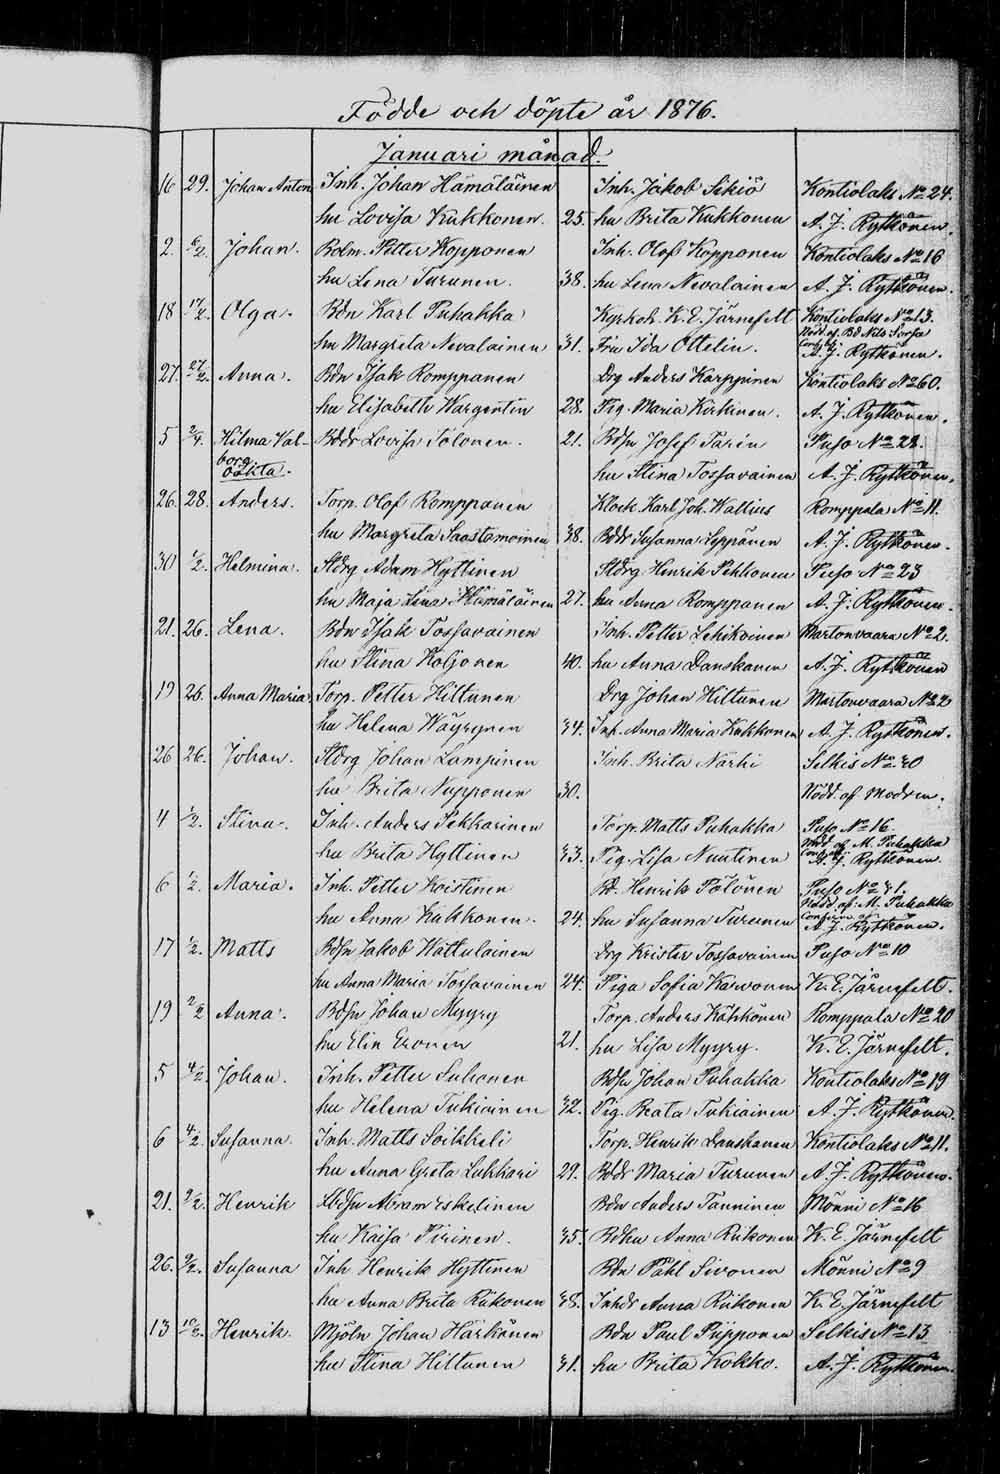 Födde och döpte år 1876.
Januari månad.
16 29. Johan Anton Inh. Johan Hämäläinen Inh. Jakob Sikiö Kontiolaks No 24.
hu Lovisa Kukkonen. 25. hu Brita Kukkonen A. J. Rytkönen.
2. 6/2. Johan. Bolm. Petter Kopponen Inh. Olof Kopponen Kontiolaks No 16
hu Lena Turunen. 38. hu Lena Nevalainen A. J. Rytkönen.
18 17/2. Olga. Bdn Karl Puhakka Kyrkoh. K. E. Järnefelt Kontiolaks No 13.
Nödd. af Bd Nils Sorsa
hu Margreta Nevalainen 31. Fru Ida Ottelin. A. J. Rytkönen.
27. 27/2. Anna. Bdn Isak Romppanen Drg Anders Karppinen Kontiolaks No 60.
hu Elisabeth Wargentin 28. Pig. Maria Kirkinen. A. J. Rytkönen.
5 2/4. Hilma Val- Bddr Lovisa Tolonen. 21. Bdsn Josef Tarin Puso No 22.
borg
oäkta. hu Stina Tossavainen A. J. Rytkönen.
26. 28. Anders. Torp. Olof Romppanen Klock. Karl Joh. Wallius Romppala No 11.
hu Margreta Saastamoinen 38. Bddr Susanna Leppänen A. J. Rytkönen.
30 1/2. Helmina. Stdrg Adam Hyttinen Stdrg Henrik Pehkonen Puso No 23
hu Maja Lena Hämäläinen 27. hu Anna Romppanen A. J. Rytkönen.
21. 26. Lena. Bdn Isak Tossavainen Inh. Petter Lehikoinen Martonvaara No 2.
hu Stina Koljonen 40. hu Anna Danskanen A. J. Rytkönen
19 26. Anna Maria. Torp. Petter Hiltunen Drg Johan Hiltunen Martonvaara No 2
hu Helena Wäyrynen 34. Inh. Anna Maria Kukkonen A. J. Rytkönen.
26 26. Johan. Stdrg Johan Lampinen Inh. Brita Närhi Selkis No 20
hu Brita Nupponen 30. Nödd. af Modren.
4 1/2. Stina. Inh. Anders Pekkarinen Torp. Matts Puhakka Puso No 16.
Nödd. af M. Puhakka
hu Brita Hyttinen 33. Pig. Lisa Nuutinen A. J. Rytkönen
6 1/2. Maria. Inh. Petter Koistinen Bd. Henrik Pölönen Puso No 21.
Nödd. af M. Puhakka
hu Anna Kukkonen. 24. hu Susanna Turunen A. J. Rytkönen.
17 1/2. Matts Bdsn Jakob Wattulainen Drg Krister Tossavainen Puso No 10
hu Anna Maria Tossavainen 24. Piga Sofia Karvonen K. E. Järnefelt.
19 2/2 Anna. Bdsn Johan Myyry Torp. Anders Kähkönen Romppala No 20
hu Elin Eronen 21. hu Lisa Myyry. K. E. Järnefelt.
5 4/2. Johan. Inh. Petter Suhonen Bdsn Johan Puhakka Kontiolaks No 19
hu Helena Tukiainen 32. Pig. Beata Tukiainen A. J. Rytkönen.
6 4/2. Susanna. Inh. Matts Soikkeli Torp. Henrik Danskanen Kontiolaks No 11.
hu Anna Greta Lukkari 29. Bddr Maria Turunen A. J. Rytkönen.
21. 7/2. Henrik Bdsn Abram Eskelinen Bdn Anders Tanninen Mönni No 16
hu Kaisa Piirinen. 35. Bdhu Anna Riikonen K. E. Järnefelt
26. 9/2. Susanna Inh Henrik Hyttinen Bdn Påhl Sivonen Mönni No 9
hu Anna Brita Riikonen 38. Inhdr Anna Riikonen K. E. Järnefelt
13 10/2. Henrik. Mjöln Johan Härkönen Bdn Paul Piipponen Selkis No 13
hu Stina Hiltunen 31. hu Brita Kokko. A. J. Rytkönen.